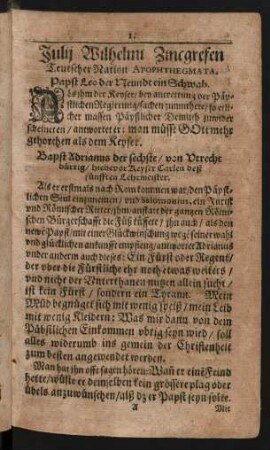 1.
Julij Wilhelmi Zincgrefen
Teutscher Nation APOPHTHEGMATA.
Papst Leo der Neundt ein Schwab.
Als ihm der Keyser / bey anrettung der Päpst-
lichen Regierungssachen zuzumuthete / so etli-
cher massen Päpstlicher Demuth zuwider
scheineten / antwortet er: man müsst GOtt mehr
gehorchen als dem Keyser.
Bapst Adrianus der sechste / von Utrecht
bürtig / hiebevor Keyser Carlen deß
fünfften Lehrmeister.
Als er erstmals nach Rom kommen war / den Päpst-
lichen Stul einzunemen / und Salomonius, ein Jurist
und Römischer Ritter / ihm / anstatt der gantzen Römi-
schen Bürgerschafft die Füß küssete / ihn auch / als den
new Papst / mit einer Glückwünschung wegen seiner wahl
und glücklichen ankunfft empfieng / antwortet Adrianus
under anderm auch dieses: Ein Fürst oder Regent /
der uber die Fürstliche ehr noch etwas weiters / und
nicht der Unterthanen nutzen allein sucht /
ist kein Fürst / sondern ein Tyrann. Mein
Mund begnüget sich mit wenig speiß / mein Leib
mit wenig Kleidern: Was mir dann von dem
Päbstlichen Einkommen ubrig seyn wird / soll
alles widerumb ins gemein der Christenheit
zum besten angewendet werden.
Man hat ihn offt sagen hören: Wañ er eine Feind
hette / wüste er demselben kein grössere plag oder
übels anzuwünschen / alß dz er Papst seyn solte.
A Mit